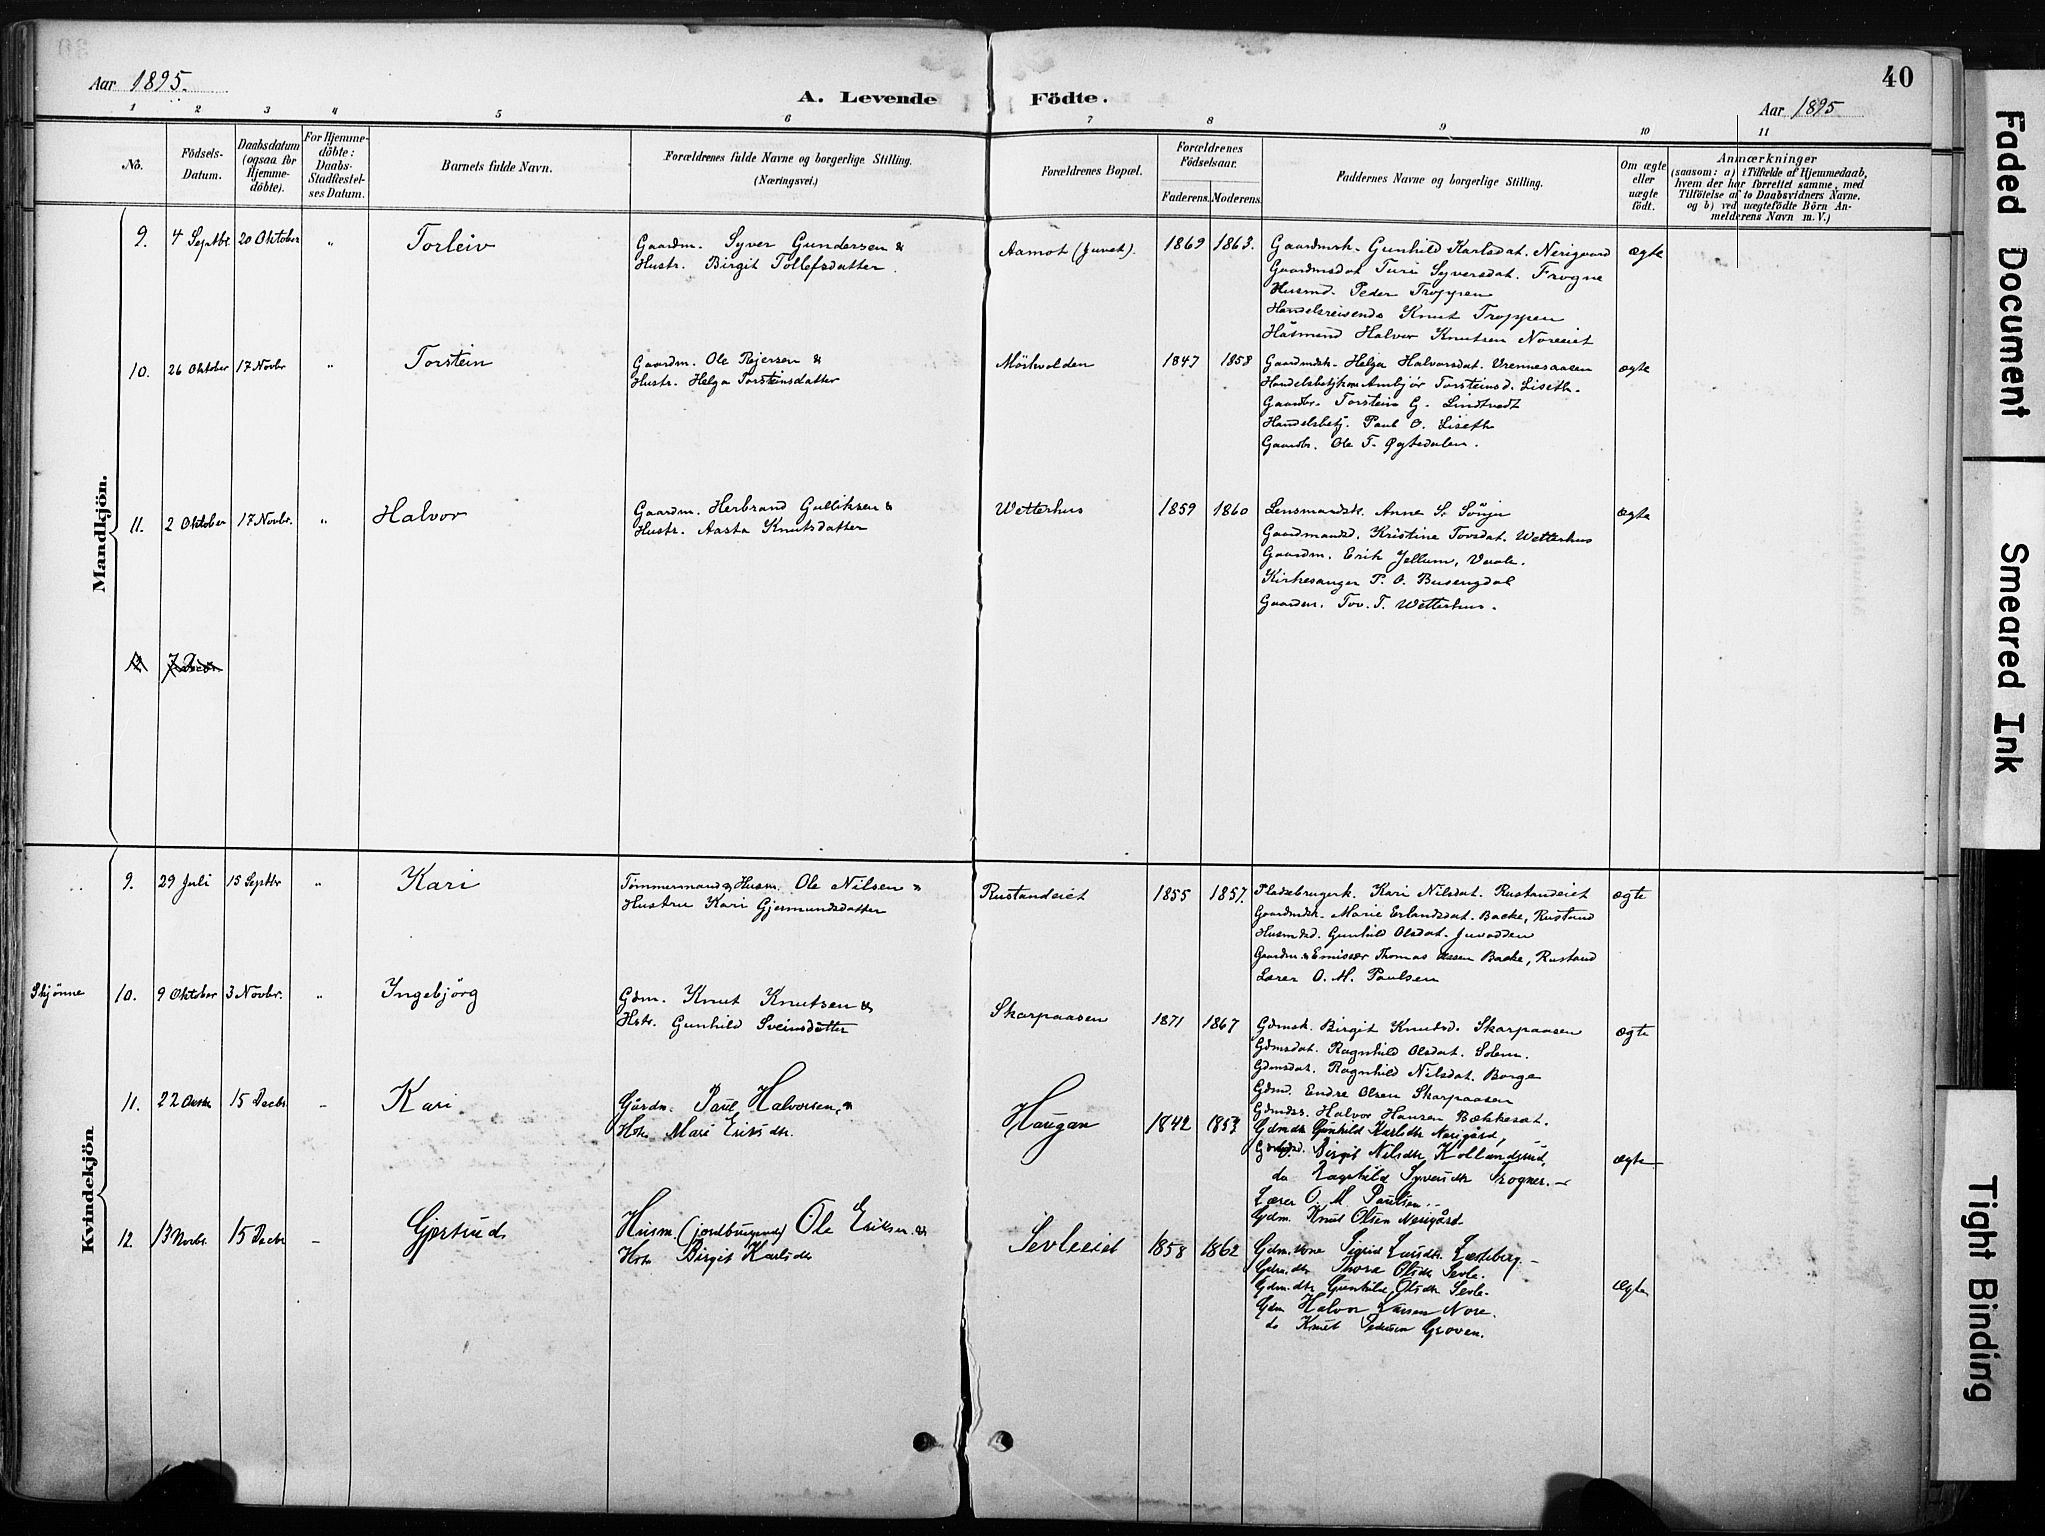 Aar 1895.
A. Levende Födte.
40
Aar 1895
1 2 3 4 5 6 7 8 9 10 11
No.
Födsels-Datum.
Daabsdatum (ogsaa for Hjemme-döbte).
For Hjemme-döbte: Daabs-Stadfæstel-ses Datum.
Barnets fulde Navn.
Forældrenes fulde Navne og borgerlige Stilling. (Næringsvei.)
Forældrenes Bopæl.
Forældrenes Födselsaar.
Faderens. Moderens.
Faddernes Navne og borgerlige Stilling.
Om ægte eller uægte födt.
Anmærkninger
(saasom: a) i Tilfælde af Hjemmedaab,
hvem der har forrettet samme, med
Tilföielse af to Daabsvidners Navne.
og b) ved uægtefödte Börn An-
melderens Navn m. V.)
Mandkjön.
9. 4 Septbr. 20 Oktober " Torleiv
Gaardm. Syver Gundersen &
Hustr. Birgit Tollefsdatter.
Aamot (Juvet). 1869 1863.
Gaardmsk. Gunhild Karlsdat. Nerigaard
Gaardmsdat Turi Syversdat. Frogne
Husmd. Peder Troppen
Handelsreisende Knut Troppen
Husmand Halvor Knutsen Noreeiet
ægte
10. 26 Oktober 17 Novbr " Torstein
Gaardm. Ole Reiersen &
Hustr. Helga Torsteinsdatter
Mörkvolden 1847 1858
Gaardmdsk. Helga Halvorsdat. Vrennesaasen
Ambjör Torsteinsd. Liseth.
Gaardbr. Torstein G. Lindtvedt
Handelsbetj. Paul O. Liseth
Gaardbr. Ole T. Øgtedalen.
ægte
11. 2 Oktober 17 Novbr. " Halvor
Gaardm. Herbrand Gulliksen &
Hustr. Aasta Knutsdatter
Wetterhus 1859 1860
Lensmandsk. Anne S. Sönju
Gaardmandsd. Kristine Tovsdat. Wetterhus
Gaardm. Erik Jellum,
Kirkesanger P. O. Busengdal
Gaardm. Tov. T. Wetterhus.
ægte
Kvindekjön
9. 29 Juli 15 Septbr " Kari
Tömmermand & Husm. Ole Nilsen &
Hustru Kari Gjermundsdatter
Rustandeiet 1855 1857.
Pladsebrugerk. Kari Nilsdat. Rustandeiet
Gaardmdsk. Marie Erlandsdat. Bakke, Rustand
Husmdsd. Gunhild Olsdat. Juvodden
Gaardm. & Emissær Thomas Bakke, Rustand
Lærer O. M. Paulsen
ægte
Skjönne
10. 9 Oktober 3 Novbr. " Ingebjörg
Gdm. Knut Knutsen &
Hstr. Gunhild Sveinsdatter
Skarpaasen 1871 1867
Gdmsk. Birgit Knutsd. Skarpaasen
Gdmsdat. Ragnhild Olsdat. Solem.
Gdmsdat. Ragnhild Nilsdat. Borge
Gdmd. Endre Olsen Skarpaasen
Gdmdss. Halvor Hansen Bækkesæt.
ægte
11. 22 15 Decbr – Kari
Gårdm. Paul Halvorsen &
Hstr Mari Eriksdtr.
Haugan 1842 1853
Gdmdtr Gunhild Karlsdtr Nerigård,
Birgit Nilsdtr Kollandsrud,
do Ragnhild Syversdtr Frogner. –
Lærer O. M. Paulsen. –
Gdm. Knut Olsen Nerigård.
ægte
12. 13 Novbr. 15 Decbr – Gjertrud
Husm (jordbrugende) Ole Eriksen &
Hstr Birgit Karlsdtr
Sevleeiet 1858 1862
Gdm.kone Sigrid Larsdtr. –
Gdm.dtr Thora Olsdtr Sevle.
Gdm.dtr Gunhild Olsdtr Sevle.
Gdm Halvor Larsen Nore.
do Knut Pedersen Groven.
ægte
Faded Document
Smeared Ink
Tight Binding